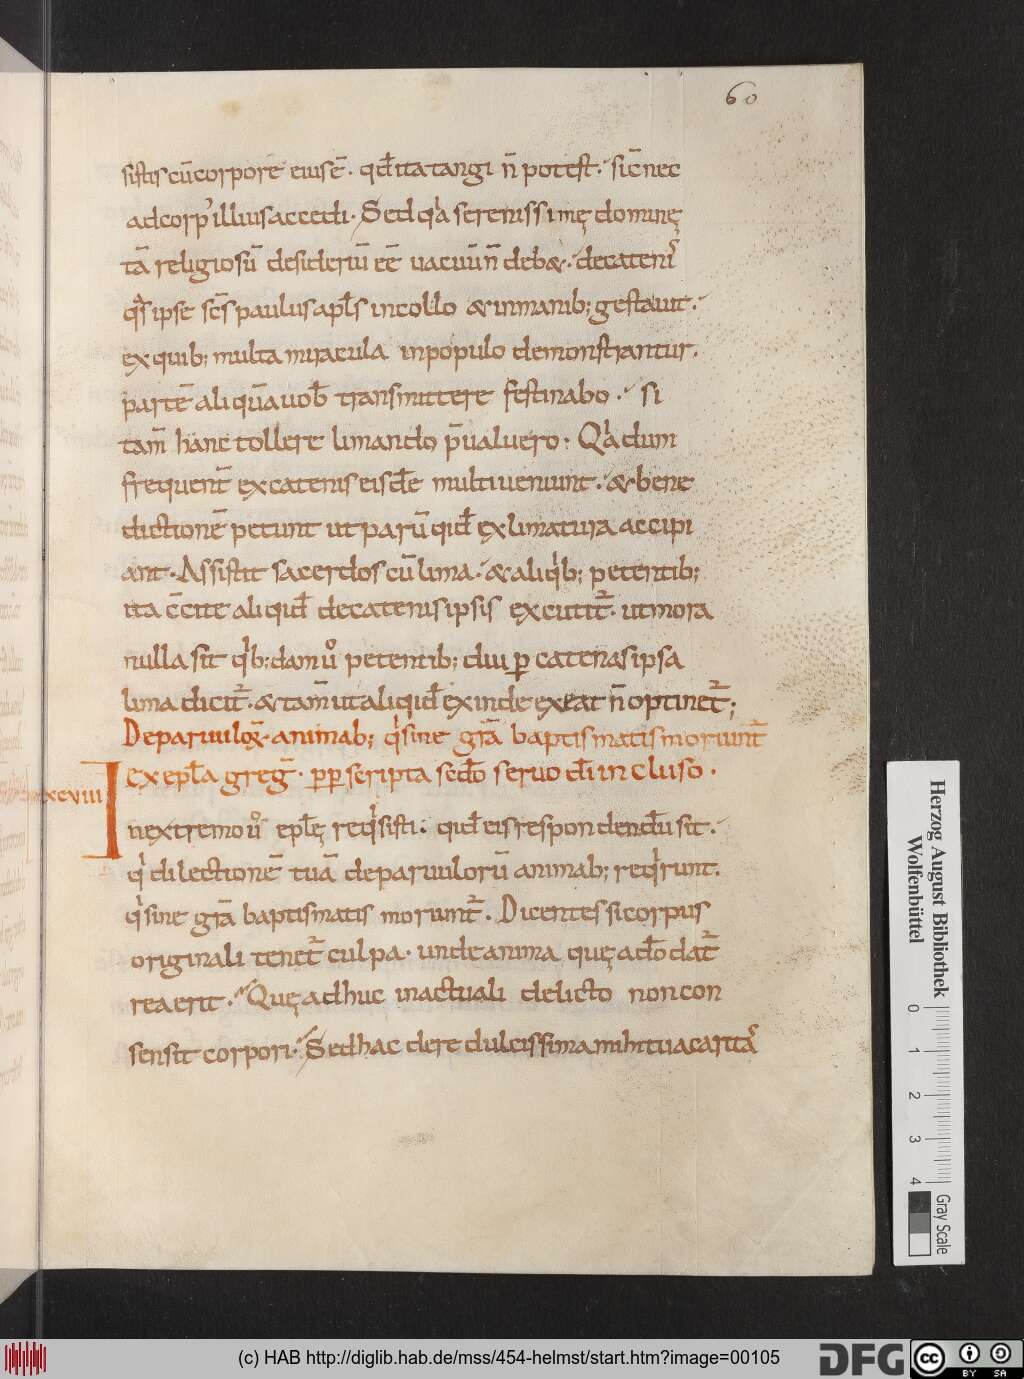 60
sistis cū corpore eius ē· qđ ita tangi n̄ potest· sic̄ nec
ad corp' illius accedi· Sed q̇a serenissimę dominę
tā religiosū desideriū eē uacuū n̄ deb&· de catenis
q̇s ipse sc̄s paulus apl̄s in collo & in manib; gestauit·
ex quib; multa miracula in populo demonstrantur·
partē aliquā uob̄ transmittere festinabo· si
tam̄ hanc tollere limando p̄ualuero· Q̇a dum
frequent̄ ex catenis eisdē multi ueniunt· & bene
dictionē petunt ut parū qid̄ ex limatura accipi
ant· Assistit sacerdos cū lima· & aliq̇b; petentib;
ita c̄cite aliqid̄ de catenis ipsis excutit᷑· ut mora
nulla sit q̇b;dam ů petentib; diu ꝑ catenas ipsa
lima dicit᷑· & tam̄ ut aliqid̄ exinde exeat n̄ optinet᷑;
De paruuloꝝ· animab; q̇ sine grā baptismatis moriunt᷑
xcviii ex epl̄a greg̅· pp scripta secd̄o seruo dī incluso·
In extremo ů epl̄ę req̇sisti· qid̄ eis respondendū sit·
q̇ dilectionē tuā de paruulorū animab; req̇runt·
q̇ sine grā baptismatis moriunt᷑· Dicentes si corpus
originali tenet᷑ culpa· unde anima quę a dō dat᷑
rea erit· Quę adhuc in actuali delicto non con
sensit corpori· Sed hac de re dulcissima mihi tua caritas
Herzog August Bibliothek
Wolfenbüttel
0 1 2 3 4
Gray Scale
(c) HAB http://diglib.hab.de/mss/454-helmst/start.htm?image=00105
DFG
cc BY SA